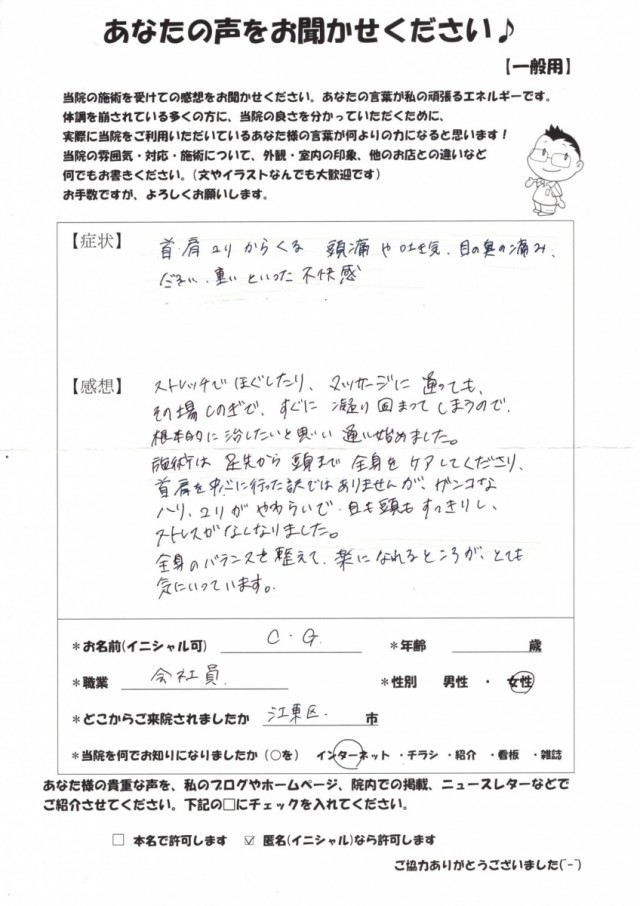 あなたの声をお聞かせください♪
【一般用】
当院の施術を受けての感想をお聞かせください。あなたの言葉が私の頑張るエネルギーです。
体調を崩されている多くの方に、当院の良さを分かっていただくために、
実際に当院をご利用いただいているあなた様の言葉が何よりの力になると思います！
当院の雰囲気・対応・施術について、外観・室内の印象、他のお店との違いなど
何でもお書きください。（文やイラストなんでも大歓迎です）
お手数ですが、よろしくお願いします。
【症状】
首・肩コリからくる 頭痛や吐き気、目の奥の痛み、
だるい、重いといった不快感
【感想】
ストレッチでほぐしたり、マッサージに通っても、
その場しのぎで、すぐに凝り固まってしまうので、
根本的に治したいと思い通い始めました。
施術は足先から頭まで全身をケアしてくださり、
首肩を中心に行った訳ではありませんが、ガンコな
ハリ、コリがやわらいで、目も頭もすっきりし、
ストレスがなくなりました。
全身のバランスを整えて、楽になれるところが、とても
気にいっています。
*お名前(イニシャル可) C・G. *年齢 歳
*職業 会社員. *性別 男性 ・ 女性
*どこからご来院されましたか 江東区. 市
*当院を何でお知りになりましたか（○を） インターネット ・チラシ ・紹介 ・看板 ・雑誌
あなた様の貴重な声を、私のブログやホームページ、院内での掲載、ニュースレターなどで
ご紹介させてください。下記の□にチェックを入れてください。
□ 本名で許可します ☑ 匿名(イニシャル)なら許可します
ご協力ありがとうございました(^-^)